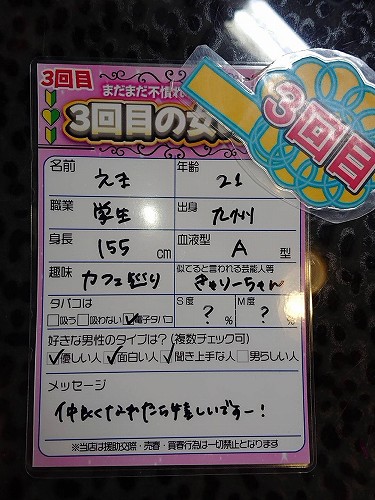 3回目
まだまだ不慣れ
3回目の女
3回目
名前 えま 年齢 21
職業 学生 出身 九州
身長 155 cm 血液型 A 型
趣味 カフェ巡り 似てると言われる芸能人等 きゃりーちゃん
タバコは S度 M度
□吸う □吸わない ☑電子タバコ ? % ? %
好きな男性のタイプは?(複数チェック可)
☑優しい人 ☑面白い人 ☑聞き上手な人 □男らしい人
メッセージ
仲良くなれたら嬉しいですー!
※当店は援助交際・売春・買春行為は一切禁止となります